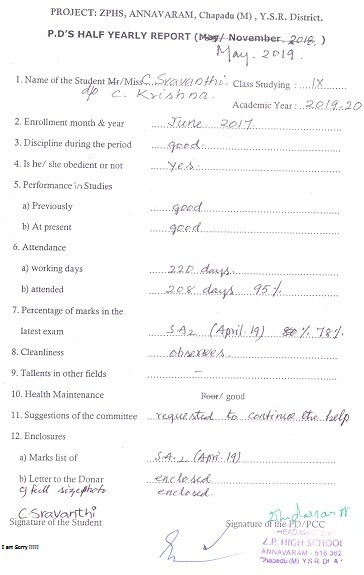 PROJECT: ZPHS, ANNAVARAM, Chapadu (M) , Y.S.R. District.
P.D'S HALF YEARLY REPORT (May/ November, 2018, )
May. 2019.
1. Name of the Student Mr/Miss C. Sravanthi. Class Studying : IX
d/o C. Krishna. Academic Year : 2019-20
2. Enrollment month & year June 2017
3. Discipline during the period good.
4. Is he/ she obedient or not yes.
5. Performance in Studies
a) Previously good
b) At present good
6. Attendance
a) working days 220 days.
b) attended 208 days 95%
7. Percentage of marks in the
latest exam S.A2 (April-19) 78%
8. Cleanliness observes.
9. Tallents in other fields –
10. Health Maintenance Poor/ good
11. Suggestions of the committee requested to continue the help
12. Enclosures
a) Marks list of S.A. 2 (April 19)
b) Letter to the Donar enclosed
c) full size photo enclosed
C. Sravanthi
Signature of the Student Signature of the PD/PCC
I am Sorry !!!!!
HEAD
Z.P. HIGH SCHOOL
ANNAVARAM - 516 362
Chapadu (M) Y.S.R. Dt